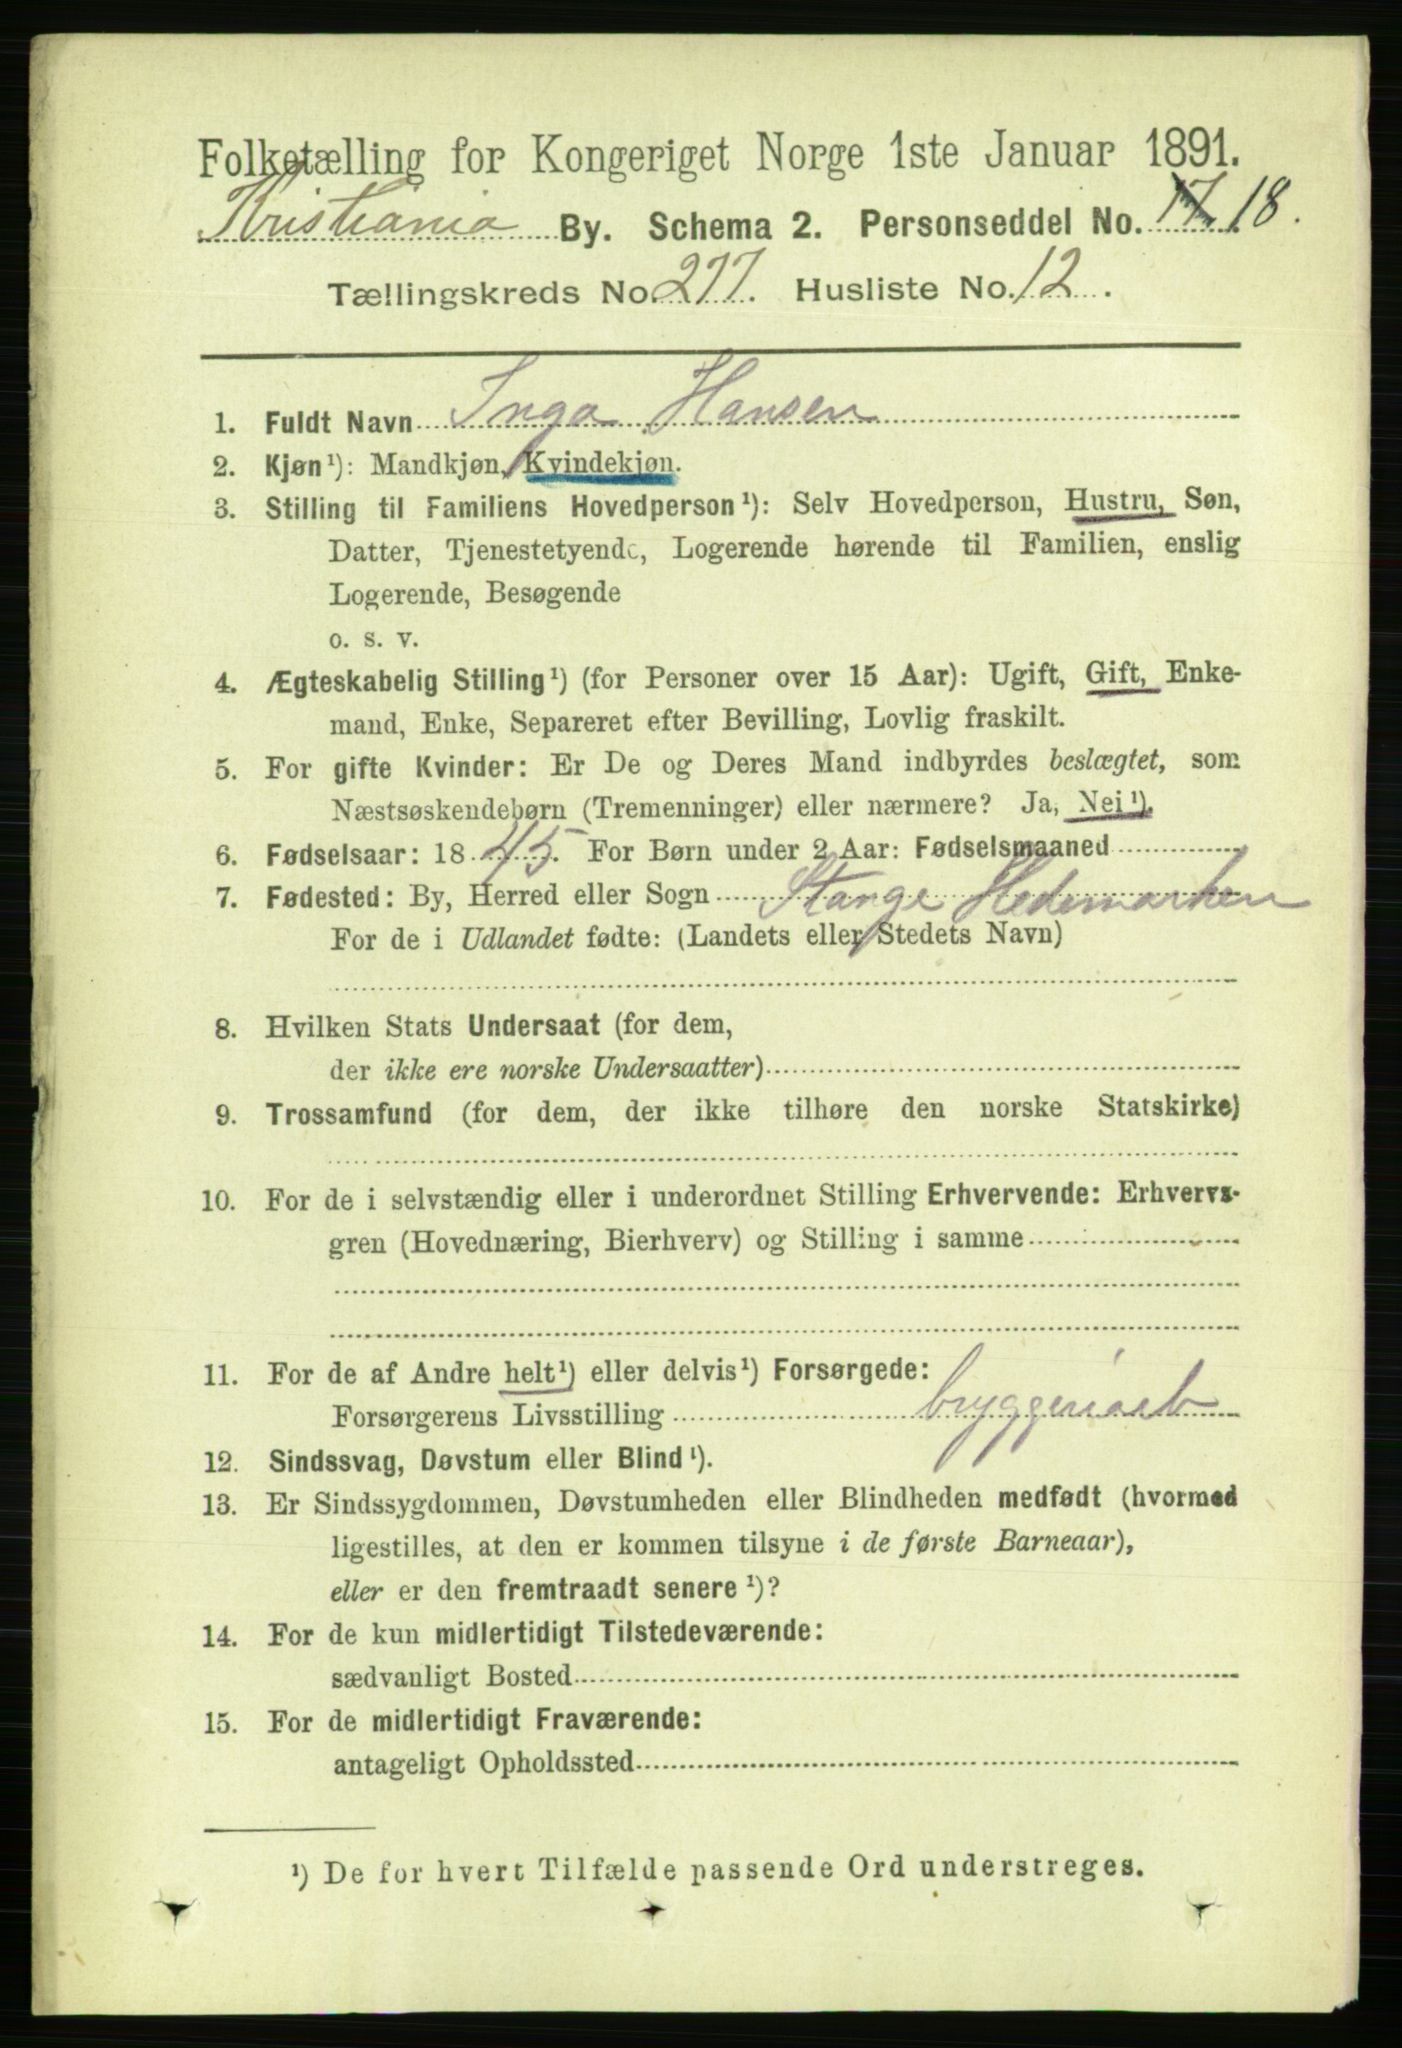 Folketælling for Kongeriget Norge 1ste Januar 1891.
Kristiania By. Schema 2. Personseddel No. 17 18.
Tællingskreds No. 277. Husliste No. 12.
1. Fuldt Navn Inga Hansen
2. Kjøn ¹): Mandkjøn, Kvindekjøn.
3. Stilling til Familiens Hovedperson ¹): Selv Hovedperson, Hustru, Søn,
Datter, Tjenestetyende, Logerende hørende til Familien, enslig
Logerende, Besøgende
o. s. v.
4. Ægteskabelig Stilling ¹) (for Personer over 15 Aar): Ugift, Gift, Enke-
mand, Enke, Separeret efter Bevilling, Lovlig fraskilt.
5. For gifte Kvinder: Er De og Deres Mand indbyrdes beslægtet, som
Næstsøskendebørn (Tremenninger) eller nærmere? Ja, Nei ¹).
6. Fødselsaar: 1845. For Børn under 2 Aar: Fødselsmaaned
7. Fødested: By, Herred eller Sogn Stange Hedemarken
For de i Udlandet fødte: (Landets eller Stedets Navn)
8. Hvilken Stats Undersaat (for dem,
der ikke ere norske Undersaatter)
9. Trossamfund (for dem, der ikke tilhøre den norske Statskirke)
10. For de i selvstændig eller i underordnet Stilling Erhvervende: Erhvervs-
gren (Hovednæring, Bierhverv) og Stilling i samme
11. For de af Andre helt ¹) eller delvis ¹) Forsørgede:
Forsørgerens Livsstilling bryggeriarb
12. Sindssvag, Døvstum eller Blind ¹).
13. Er Sindssygdommen, Døvstumheden eller Blindheden medfødt (hvormed
ligestilles, at den er kommen tilsyne i de første Barneaar),
eller er den fremtraadt senere ¹)?
14. For de kun midlertidigt Tilstedeværende:
sædvanligt Bosted
15. For de midlertidigt Fraværende:
antageligt Opholdssted
¹) De for hvert Tilfælde passende Ord understreges.